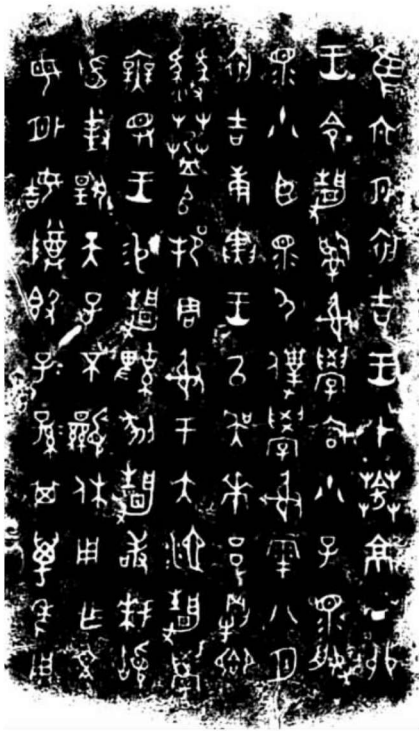 隹六月初吉王才𦸗京丁卯
王令靜𤔲射學宮小子眔服
眔小臣眔尸僕學射雩八月
初吉庚寅王以吳𠦪呂㓝卿
𢿃𦵯𠂤邦周射于大池靜學
無斁王易靜鞞剢靜敢拜𩒨
首對揚天子不顯休用乍文
母外姞尊簋子=孫=其萬年用